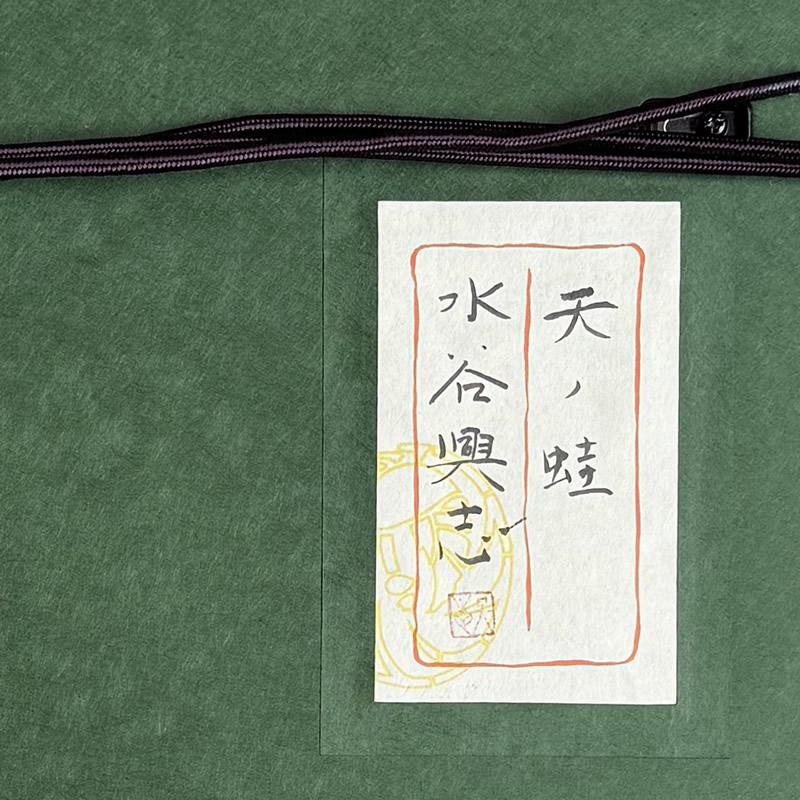 天ノ蛙
水谷興志